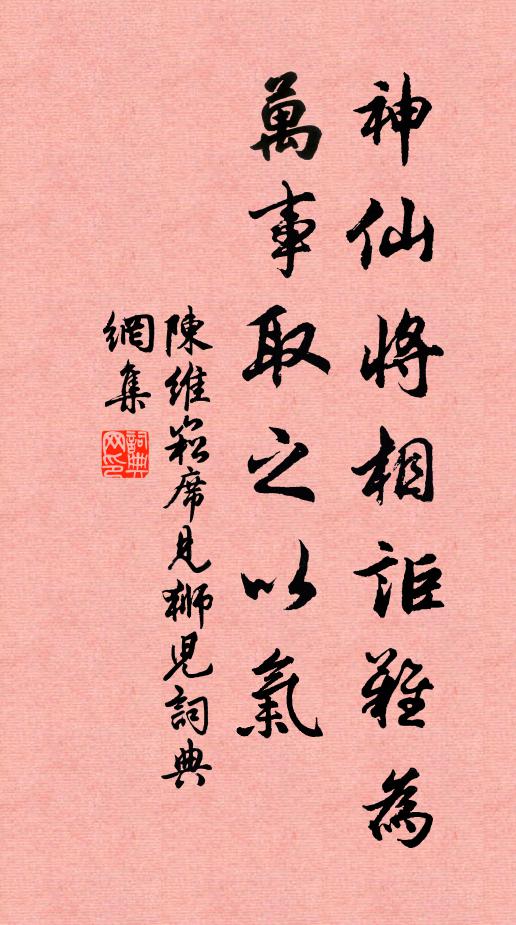 神仙將相詎難為
萬事取之以氣
陳維崧席見獅兒詞典
網集
詞典網印